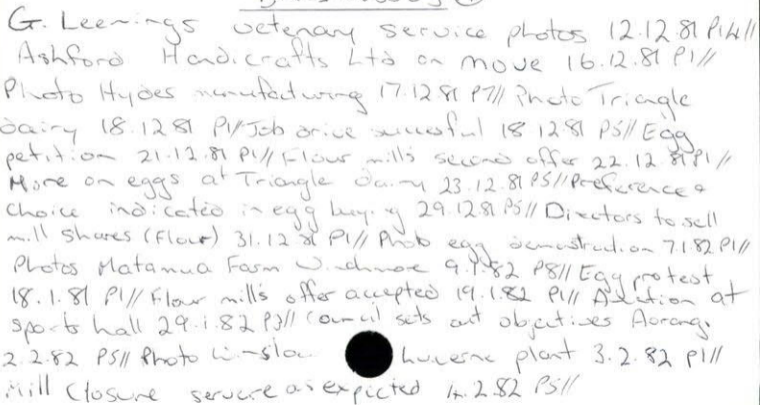 G. Leemings vetenary service photos 12.12.81 P14//
Ashford Handicrafts Ltd on move 16.12.81 P1//
Photo Hydes manufacturing 17.12 81 P7// Photo Triangle
dairy 18.12 81 P1// Job drive succesful 18 12.81 P5// Egg
petition 21.12.81 P1// Flour mills second offer 22.12.81 P1//
More on eggs at Triangle dairy 23.12.81 P5// Preference &
choice indicated in egg buying 29.12.81 P5// Directors to sell
mill shares (flour) 31.12 81 P1// Photo egg demonstration 7.1.82 P1//
Photos Matamua Farm 9.1.82 P8// Egg protest
18.1.81 P1// Flour mills offer accepted 19.1.82 P1// Addition at
sports hall 29.1.82 P3// Council sets out objectives Aorangi
2.2.82 P5// Photo Winslow lucerne plant 3.2.82 P1//
Mill closure as expected 4.2.82 P5//